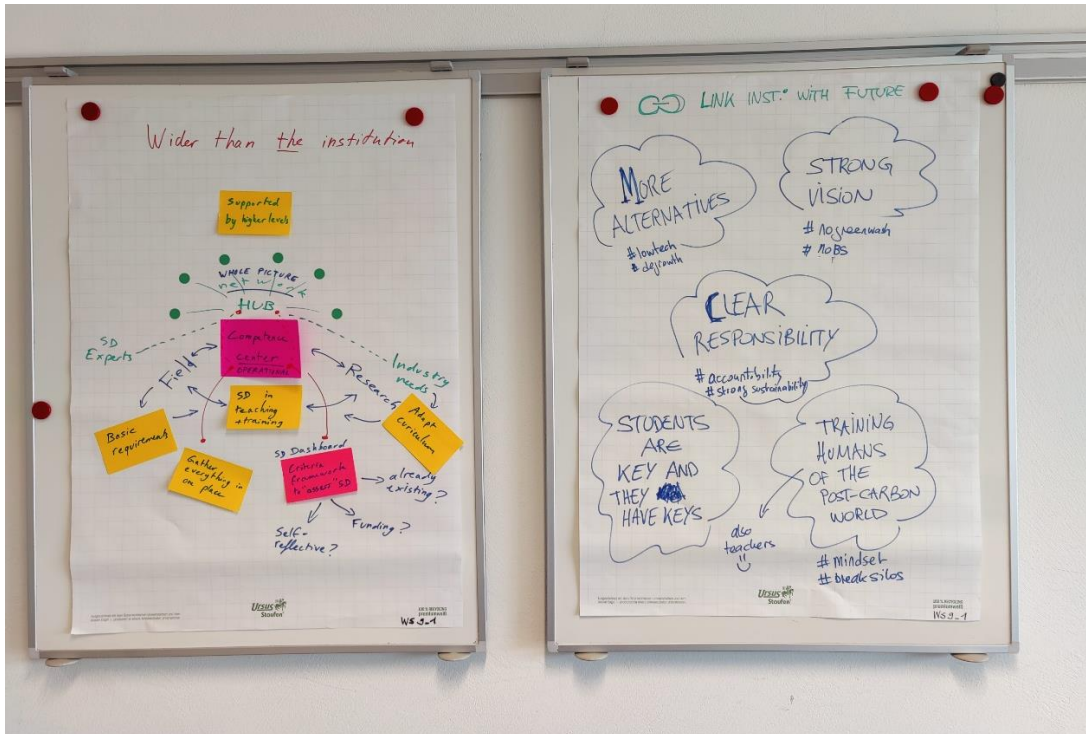 Wider than the institution
Supported
by higher levels
WHOLE PICTURE
network
HUB
SD
Experts
Competence
center
OPERATIONS
Field
Research
Industry
needs
SD in
teaching
+training
Basic
requirements
Adapt
curriculum
Gather
everything in
one place
SD Dashboard
Criteria
framework
to "assess" SD
already
existing?
Funding?
Self-
reflective?
Ursus
Staufen
WS 9_1
LINK INST.° WITH FUTURE
MORE
ALTERNATIVES
#lowtech
#degrowth
STRONG
VISION
#nogreenwash
#noBS
CLEAR
RESPONSIBILITY
#accountibility
#strong sustainability
STUDENTS
ARE
KEY AND
THEY
HAVE KEYS
also
teachers
TRAINING
HUMANS
OF THE
POST-CARBON
WORLD
#mindset
#break silos
Ursus
Staufen
WS 9_1